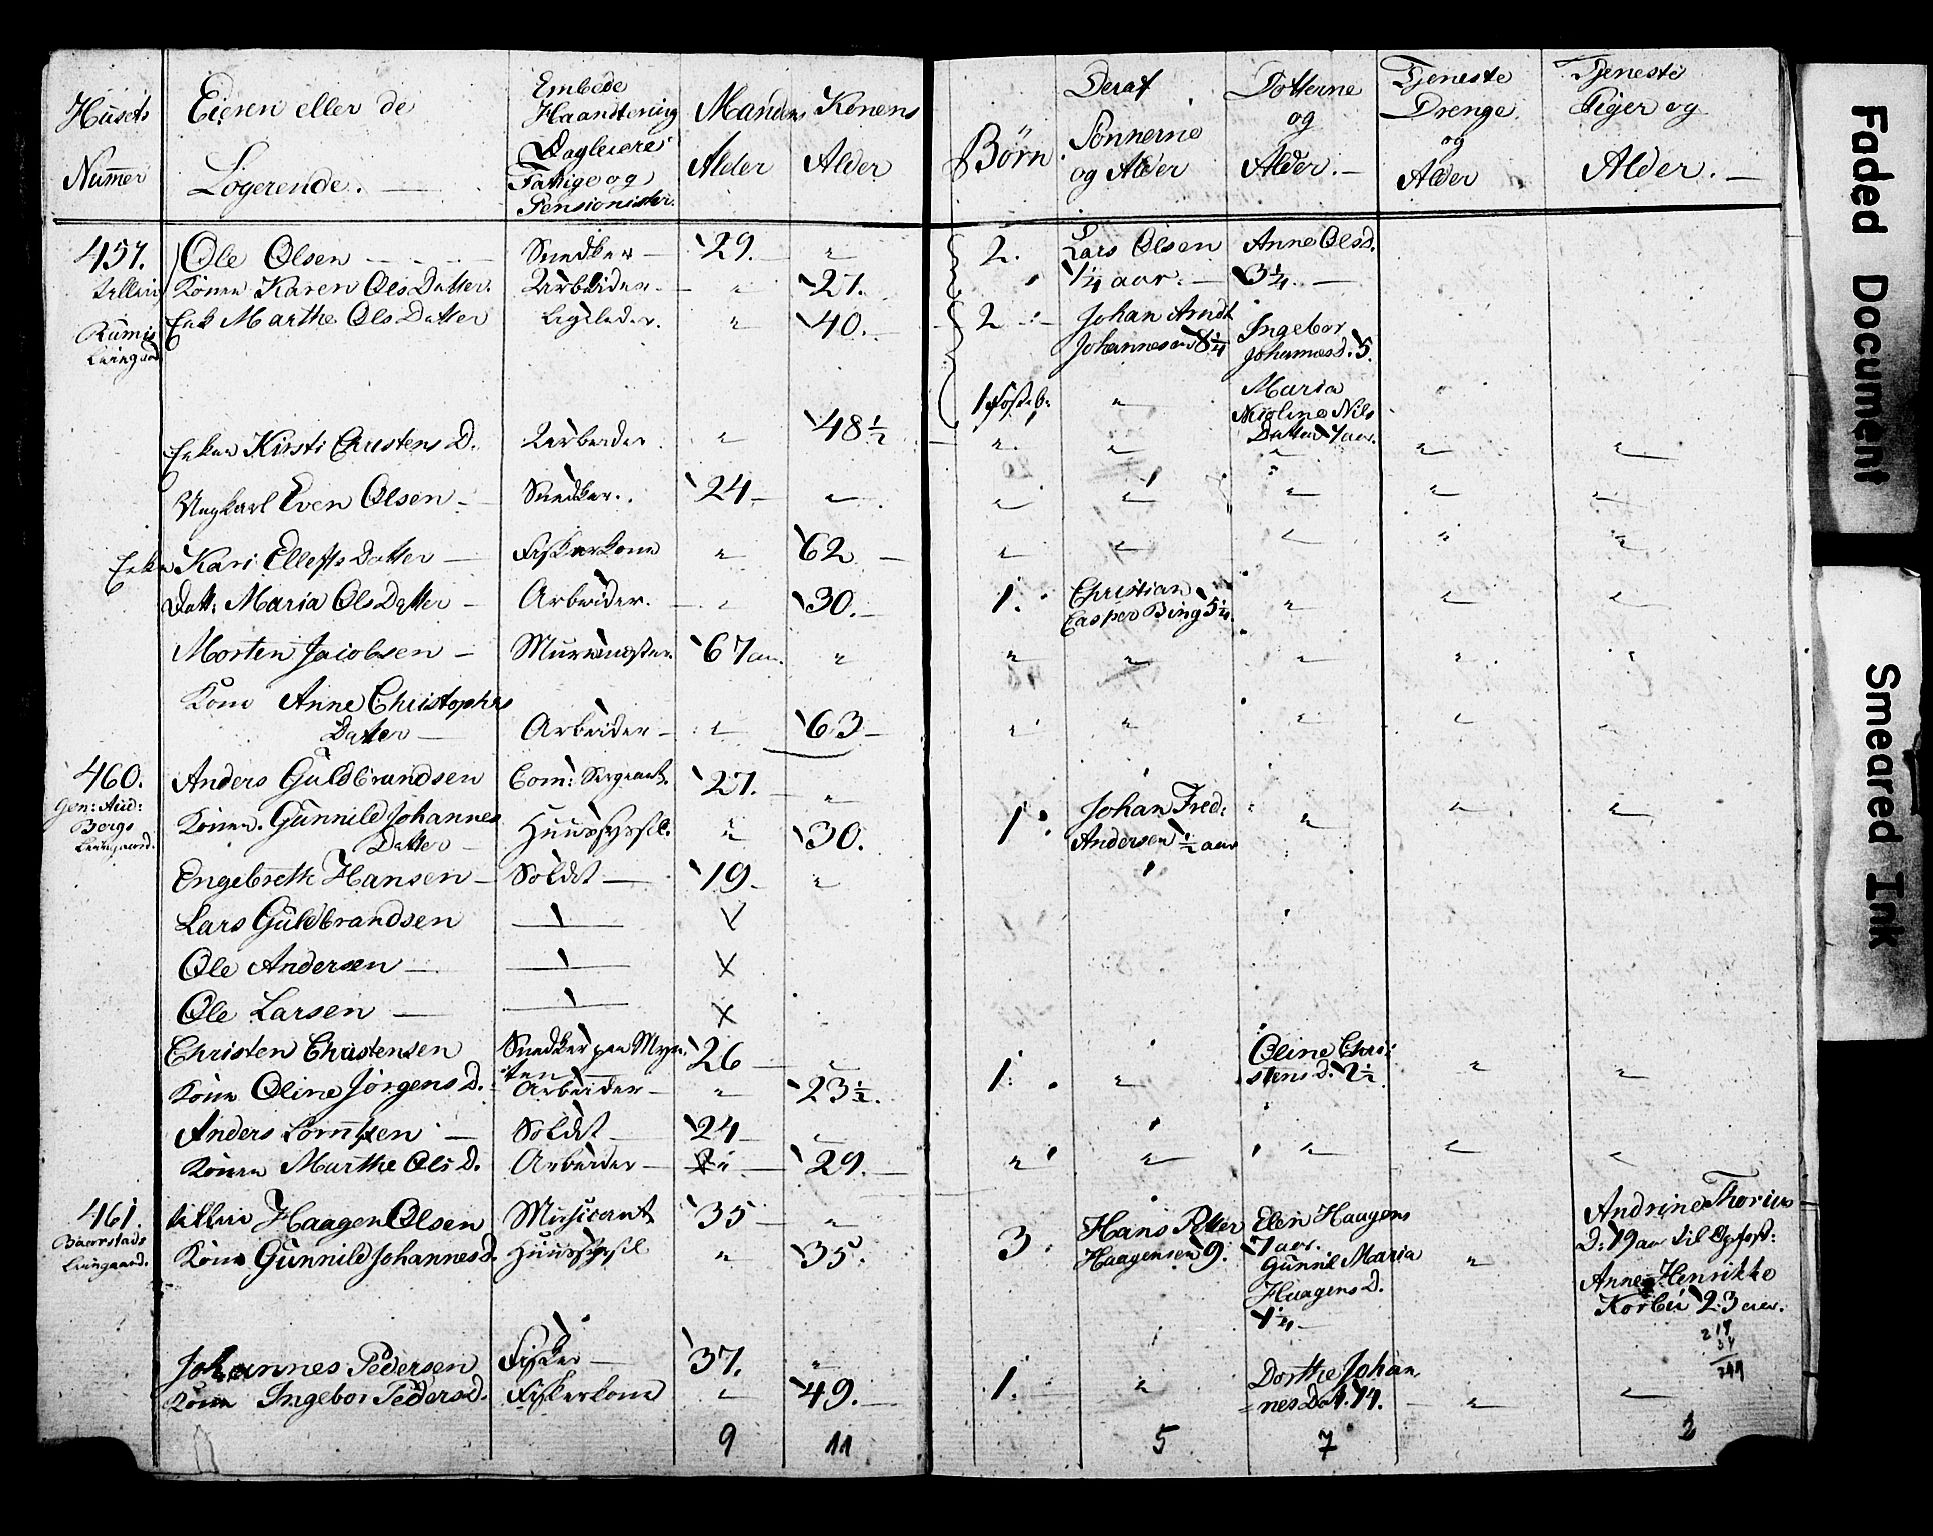 Husets Nummer
Eieren eller de Logerende.
Embede Haandtering Dagleiere Fattige og Pensionister.
Mandens Alder
Konens Alder
Börn.
Deraf Sönnerne og Alder
Dotterne og Alder.
Tjeneste Drenge og Alder
Tjeneste Piger og Alder.
457. Ole Olsen Snedker 29. 2. Lars Olsen Anne Olsd.
Konen Karen Ols Datter. Arbeider 27. 1/4 aar. 3 1/4.
Enk Marthe Ols Datter 40. 2 Johan Arndt Ingebor
Johannesen 8 1/4 Johannesd. 5.
1 Fosterb. Maria
Nicoline Nils
Enken Kirsti Christens D. Arbeider. 48 1/2 Datter 7 aar.
Ungkarl Even Olsen Snedker. 24
Enke Kari Ellefs Datter Fiskerkone 62
Datt: Maria Ols Datter Arbeider. 30. 1. Christian
Casper Bing 5 1/4.
Morten Jacobsen Murmester. 67 aar.
Kone Anne Christophers
Datter Arbeider 63
460. Anders Guldbrandsen Com: Sergeant. 27.
Gen: Aud: Konen. Gunnild Johannes 1 Johan Fred:
Bergs Datter 30. Andersen 1/2 aar
Engebreth Hansen Soldat 19
Lars Guldbrandsen
Ole Andersen
Ole Larsen
Christen Christensen Snedker paa 26 Oline Chri
Kone Oline Jörgens D. Arbeider 23 1/2. 1. stens d. 2 1/2
Anders Lorntzen Soldat 24
Konen Marthe Ols D. Arbeider 29.
461. Haagen Olsen Musicant 35 Hans Peter Elen Haagens Andrine Thorius
Kone Gunnild Johannesd. 35. 3. Haagensen 9. 7 aar. D: 19 aar til Opfost:
Gunnil Maria Anne Henrikke
Haagens D. Korbü 23 aar.
1 1/4
217
34
Johannes Pedersen Fisker 37. Dorthe Johan
Kone Ingebor Peders d. Fiskerkone 49. 1. nes Dat. 14.
9 11 5 7 2
Faded Document
Smeared Ink